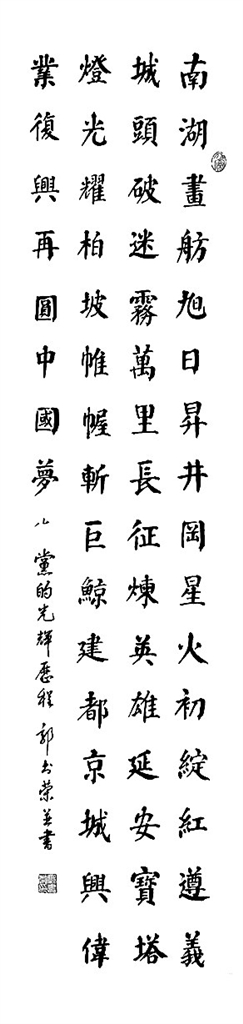 南湖畫舫旭日昇井岡星火初綻紅遵義
城頭破迷霧萬里長征煉英雄延安寶塔
燈光耀柏坡帷幄斬巨鯨建都京城興偉
業復興再圓中國夢 八 黨的光輝歷程 郭 荣並書